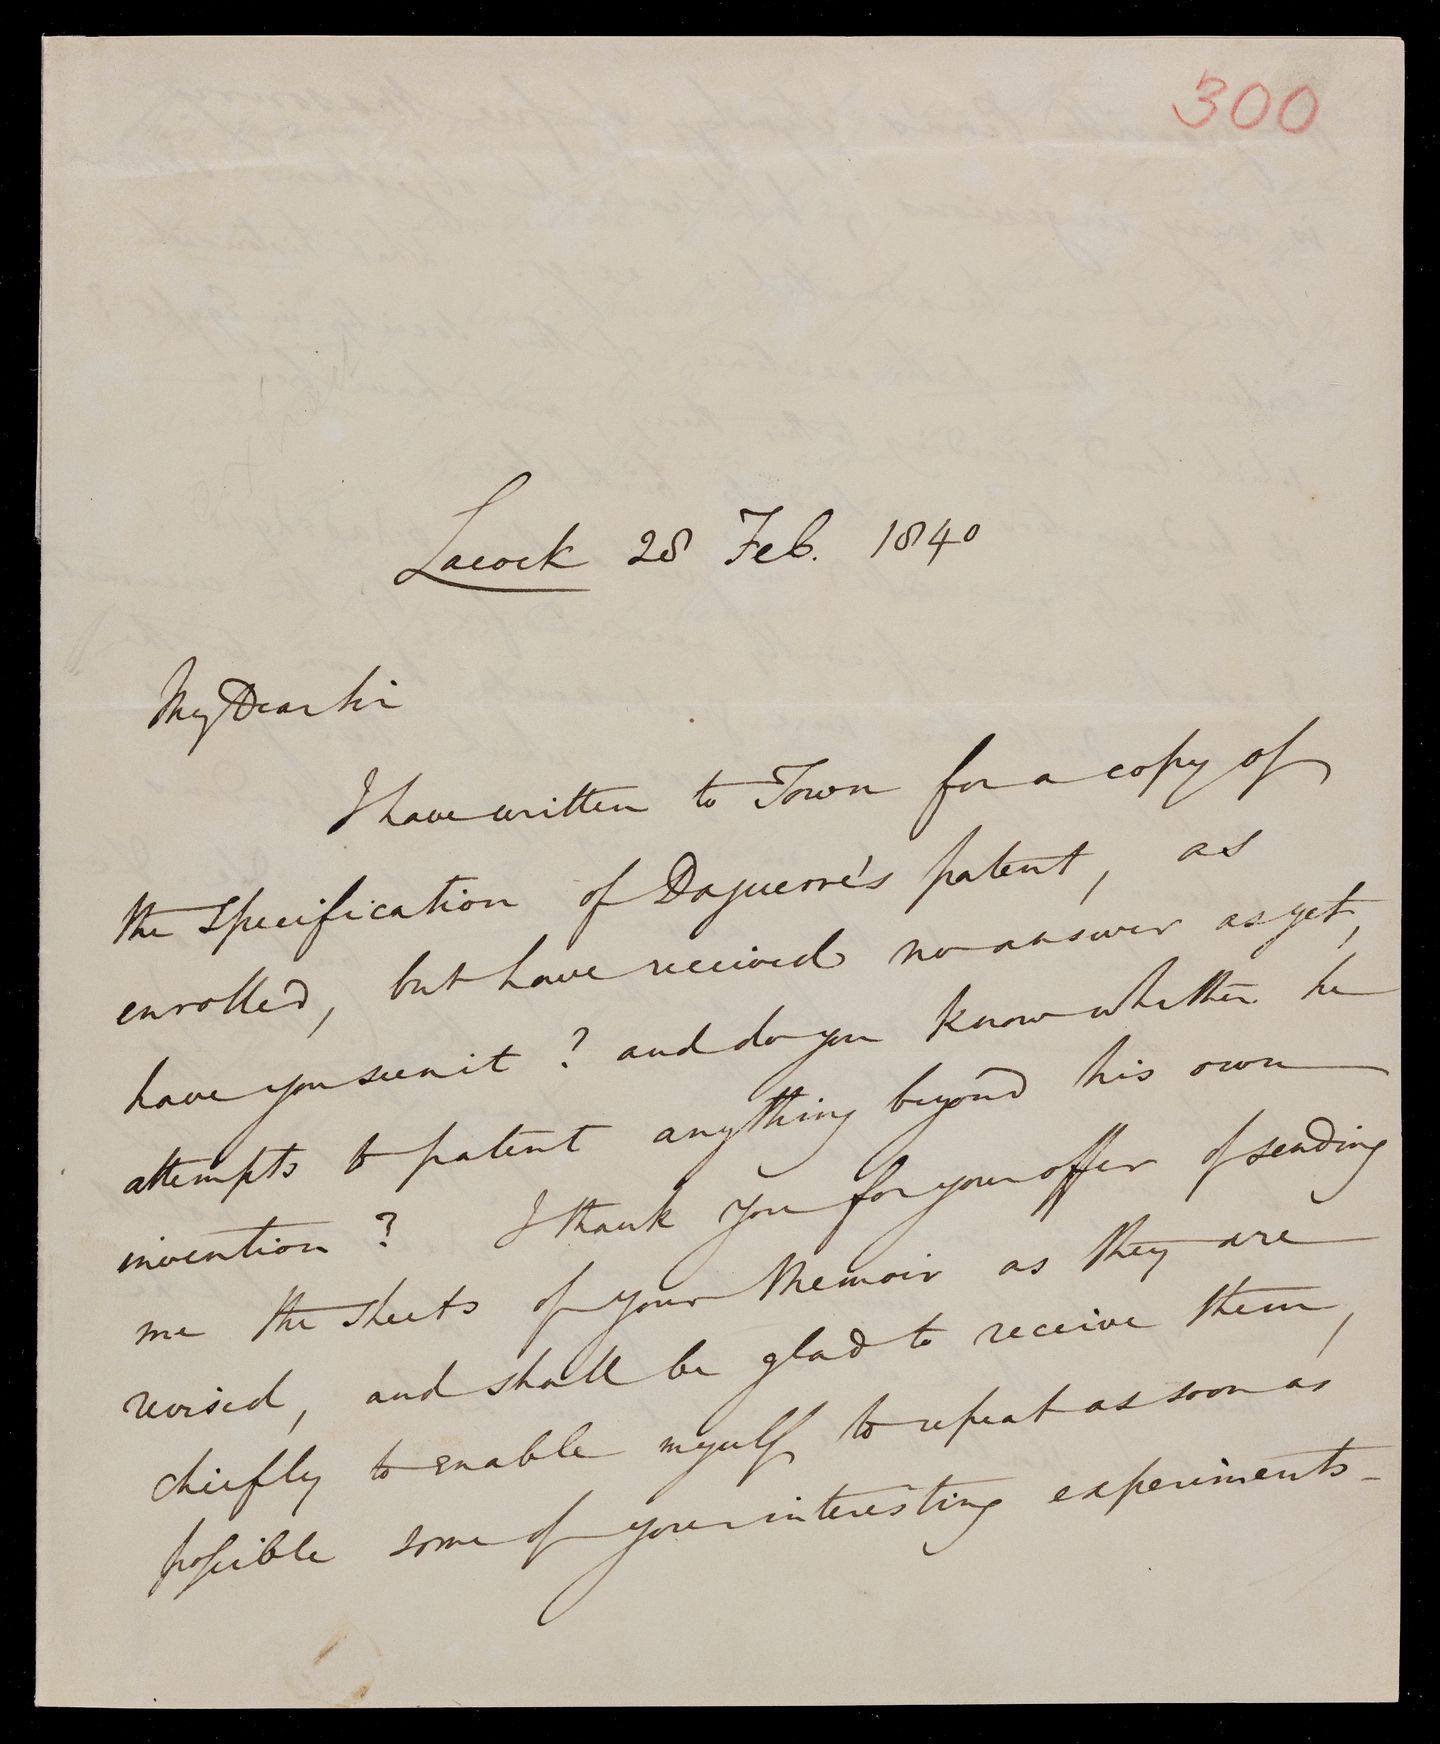 300
Lacock 28 Feb. 1840
My Dear Sir
I have written to Town for a copy of
the specification of Daguerre's patent, as
enrolled, but have received no answer as yet,
have you seen it ? and do you know whether he
attempts to patent anything beyond his own
invention ? I thank you for your offer of sending
me the sheets of your Memoir as they are
revised, and shall be glad to receive them,
chiefly to enable myself to repeat as soon as
possible some of your interesting experiments –